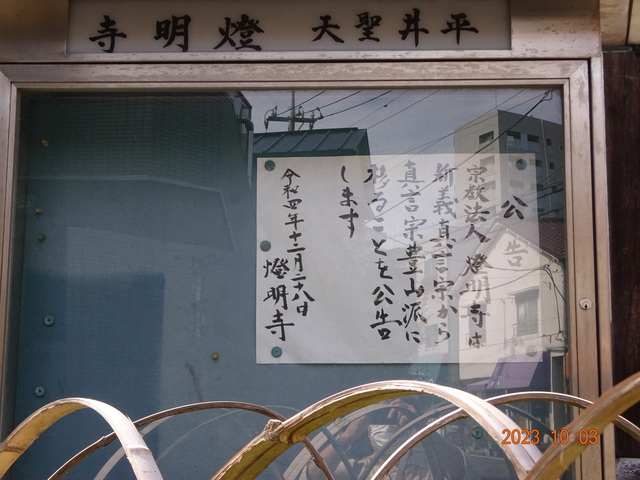 平井聖天 燈明寺
公告
宗教法人 燈明寺は
新義真言宗から
真言宗豊山派に
移ることを公告
します
令和四年十二月二十八日
燈明寺
2023 10 03